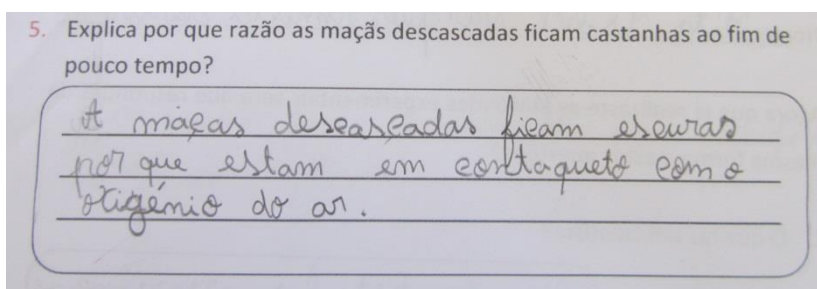 5. Explica por que razão as maçãs descascadas ficam castanhas ao fim de
pouco tempo?
A maças descascadas ficam escuras
por que estam em contaqueto com o
oxigénio do ar.